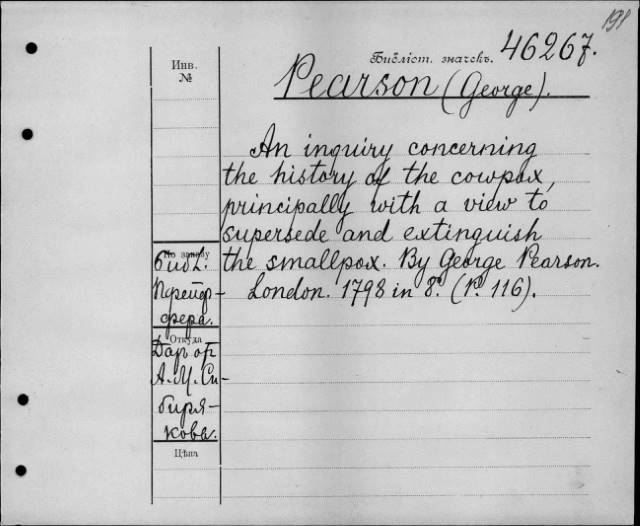 191
Библіот. значекъ. 46267.
Инв.
№
Pearson (George).
An inquiry concerning
the history of the cowpox,
principally with a view to
supersede and extinguish
the smallpox. By George Pearson.
London. 1798 in 8º. (P. 116).
По запису
Библ.
Пфейф-
фера.
Откуда
Даръ от
А. М. Си-
биря-
кова.
Цѣна